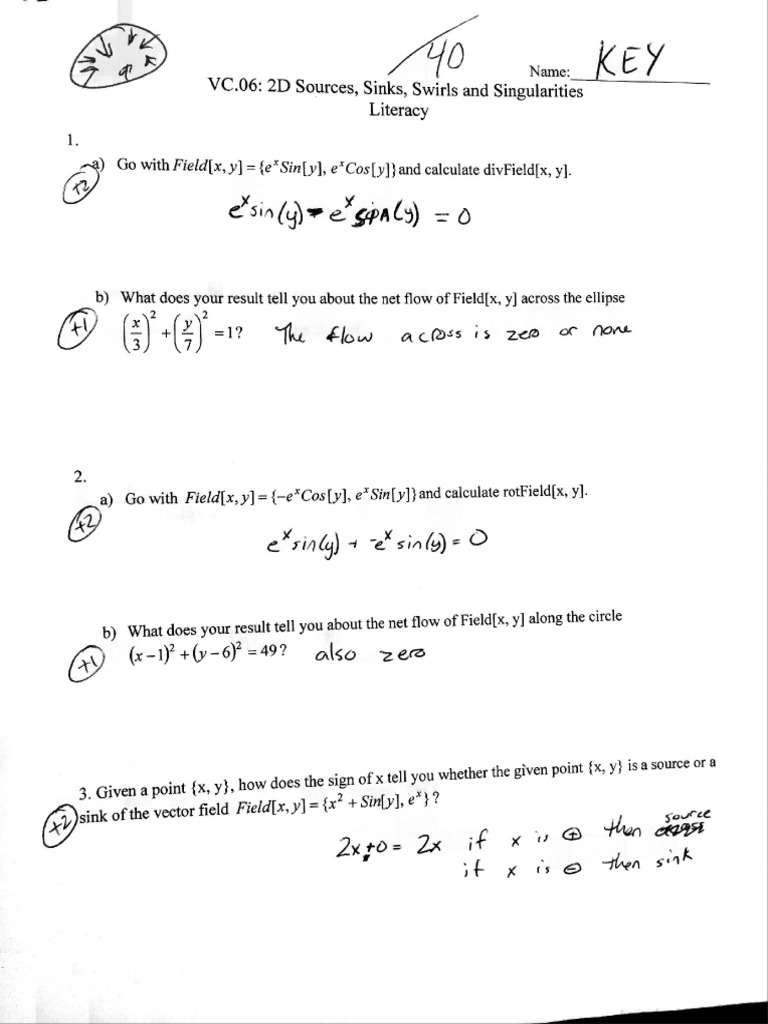 /40
Name: KEY
VC.06: 2D Sources, Sinks, Swirls and Singularities
Literacy
1.
a) Go with Field[x, y] = {eˣSin[y], eˣCos[y]} and calculate divField[x, y].
+2
eˣsin(y) - eˣ sin(y) = 0
b) What does your result tell you about the net flow of Field[x, y] across the ellipse
+1 (x/3)² + (y/7)² = 1? The flow across is zero or none
2.
a) Go with Field[x, y] = {−eˣCos[y], eˣSin[y]} and calculate rotField[x, y].
+2
eˣ sin(y) + -eˣ sin(y) = 0
b) What does your result tell you about the net flow of Field[x, y] along the circle
+1 (x − 1)² + (y − 6)² = 49? also zero
3. Given a point {x, y}, how does the sign of x tell you whether the given point {x, y} is a source or a
+2 sink of the vector field Field[x, y] = {x² + Sin[y], eˣ}?
2x+0 = 2x if x is ⊕ then source
if x is ⊖ then sink